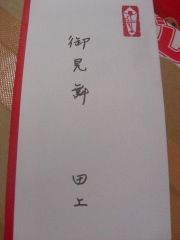 御見舞
田上